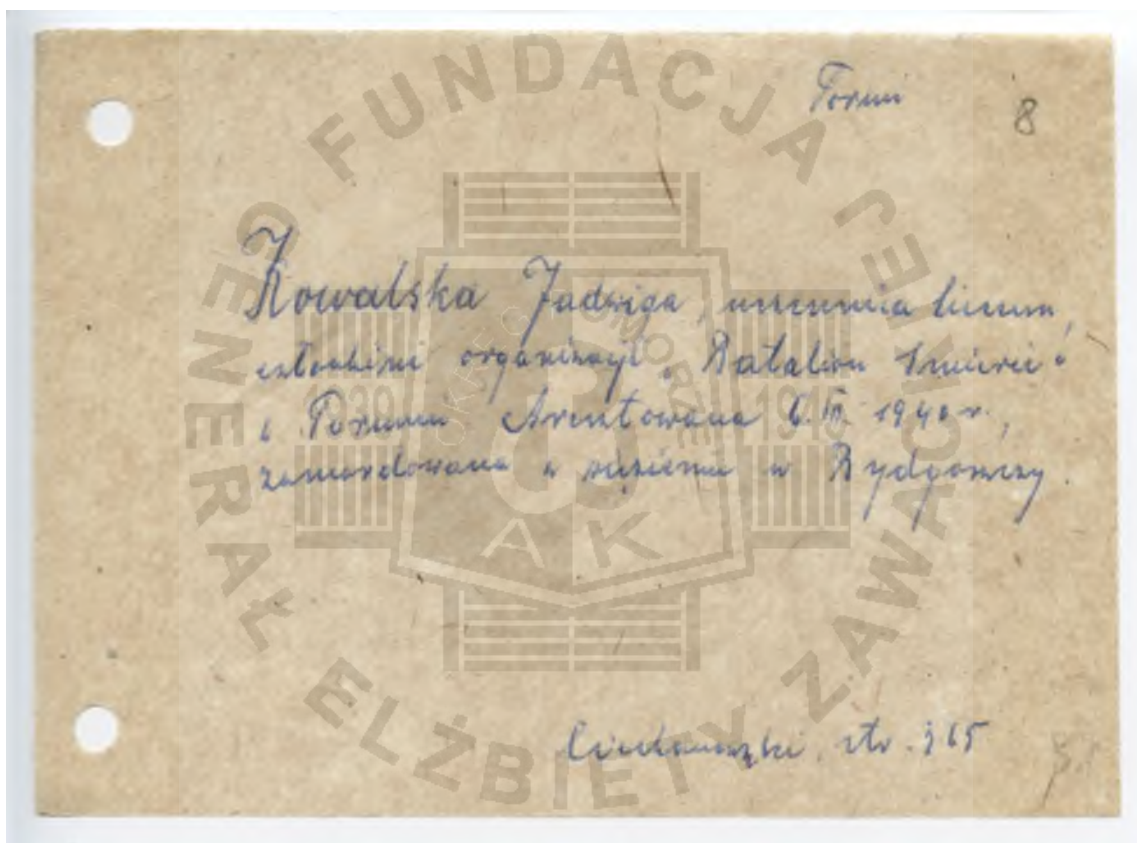 Toruń 8
Kowalska Jadwiga, uczennica liceum,
członkini organizacji „Batalion Śmierci"
w Toruniu Aresztowana 6.III.1940 r.,
zamordowana w więzieniu w Bydgoszczy.
Ciechanowski, str. 365
FUNDACJA GENERAŁ ELŻBIETY ZAWACKIEJ
OKRĘG POMORZE
AK